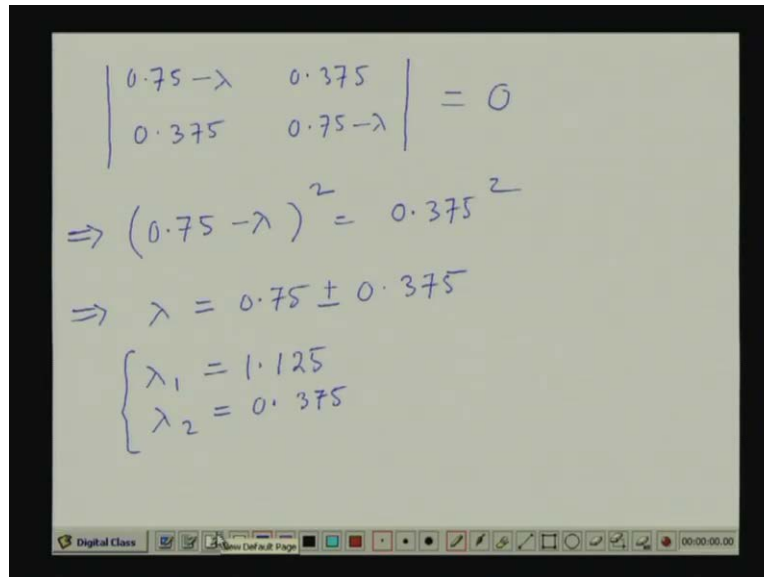 | 0.75 − λ  0.375 |
| 0.375  0.75 − λ | = 0
⇒ (0.75 − λ)² = 0.375²
⇒ λ = 0.75 ± 0.375
{ λ₁ = 1.125
λ₂ = 0.375
Digital Class New Default Page 00:00:00.00